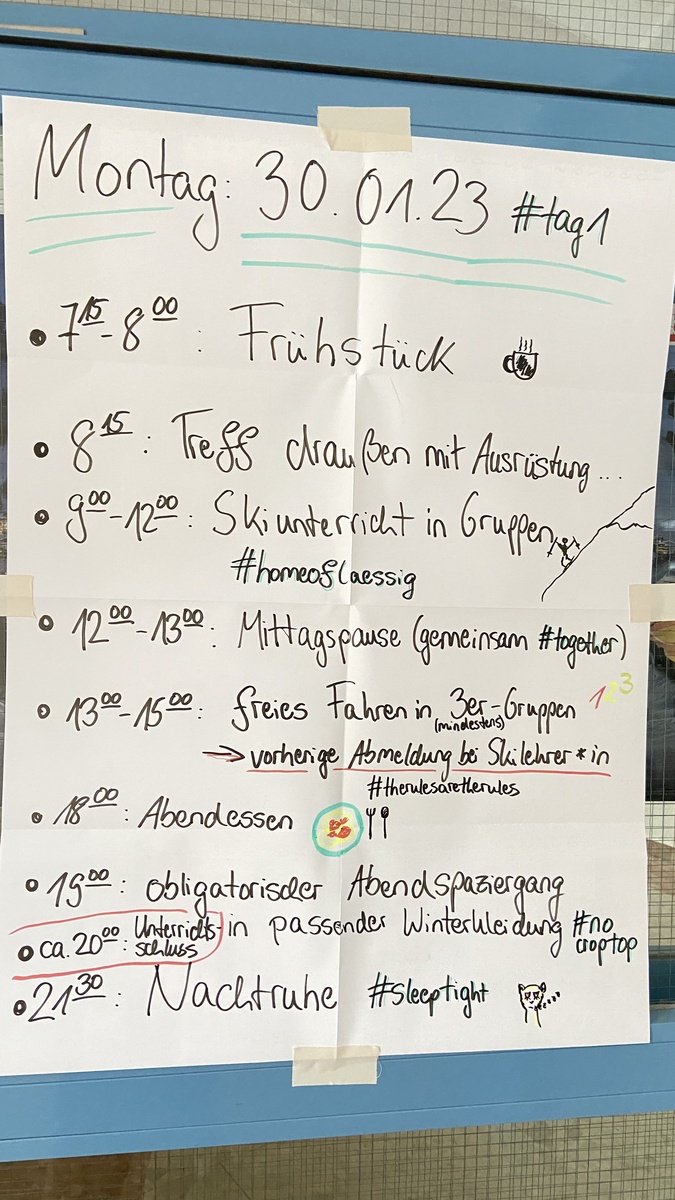 Montag: 30.01.23 #tag1
• 7 15 - 8 00 : Frühstück
• 8 15 : Treff draußen mit Ausrüstung...
• 9 00 - 12 00 : Skiunterricht in Gruppen
#homeoflaessig
• 12 00 - 13 00 : Mittagspause (gemeinsam #together)
• 13 00 - 15 00 : freies Fahren in 3er-Gruppen 123
(mindestens)
→ vorherige Abmeldung bei Skilehrer*in
#therulesaretherules
• 18 00 : Abendessen
• 19 00 : obligatorischer Abendspaziergang
in passender Winterkleidung #no croptop
• ca. 20 00 : Unterrichts-
schluss
• 21 30 : Nachtruhe #sleeptight